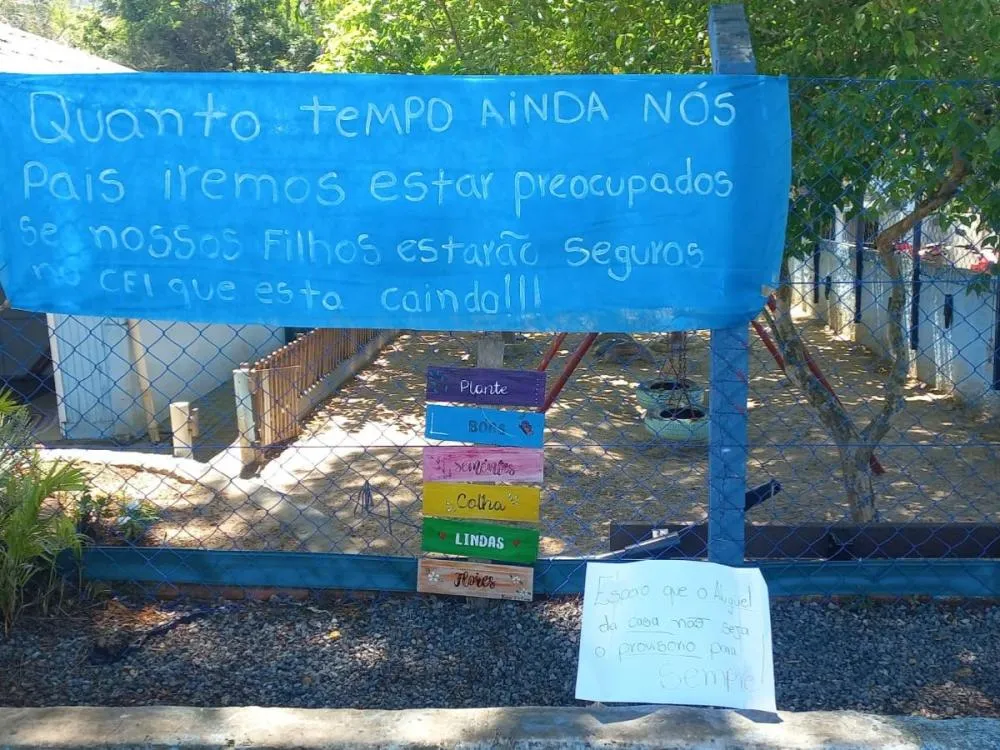 Quanto tempo AINDA NÓS
Pais iremos estar preocupados
se nossos Filhos estarão seguros
no CEI que esta caindo!!!
Plante
BOAS
sementes
Colha
LINDAS
Flores
Espero que o Aluguel
da casa não seja
o provisorio para
sempre